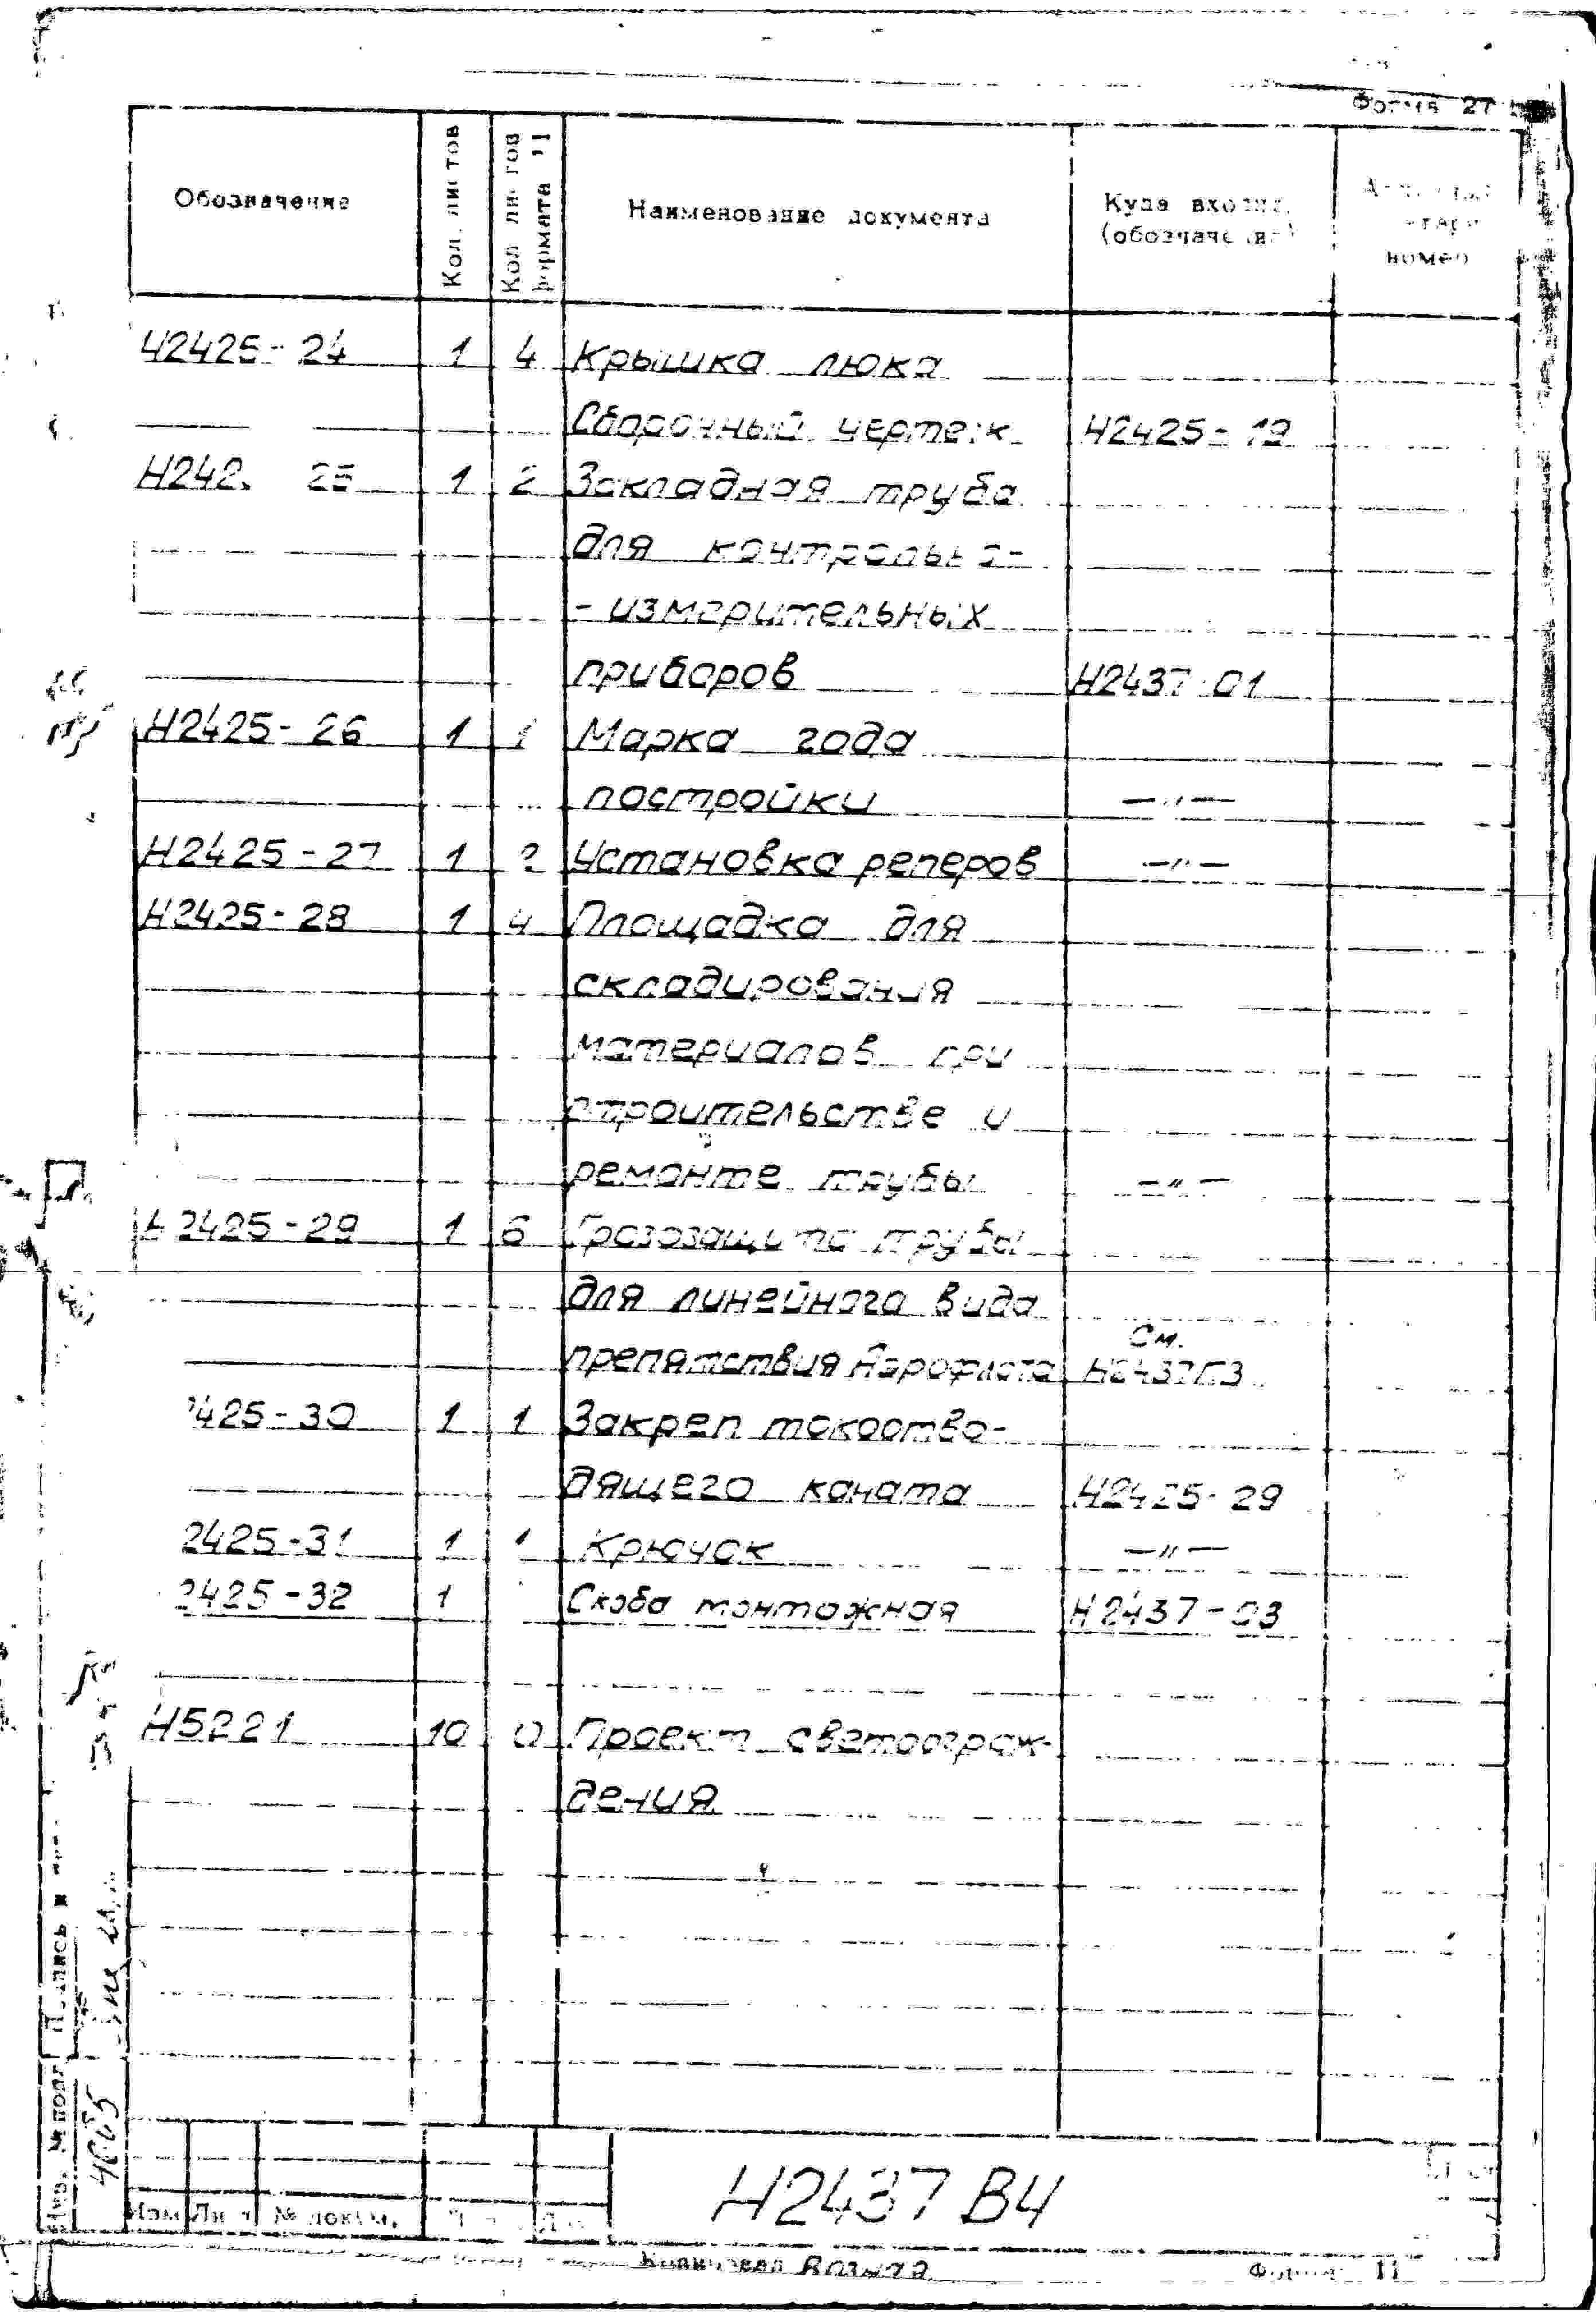 Форма 27
Обозначение
Кол. листов
Кол листов формата 11
Наименование документа
Куда входит
(обозначение)
номер
Н2425-24 1 4 Крышка люка
Сборочный чертеж Н2425-19
Н242 25 1 2 Закладная труба
для контрольно-
-измерительных
приборов Н2437-01
Н2425-26 1 1 Марка года
постройки —„—
Н2425-27 1 2 Установка реперов —„—
Н2425-28 1 4 Площадка для
складирования
материалов при
строительстве и
ремонте трубы —„—
Н2425-29 1 6 Грозозащита трубы
для линейного вида
См.
препятствия Аэрофлота Н2437ПЗ
2425-30 1 1 Закреп токоотво-
дящего каната Н2425-29
2425-31 1 1 Крючок —„—
2425-32 1 Скоба монтажная Н2437-03
Н5221 10 0 Проект светоограж-
дения
Подпись и
Инв. № подл
Изм Лист № докум.
Н2437 В4
Лист
Копировал
Формат 11